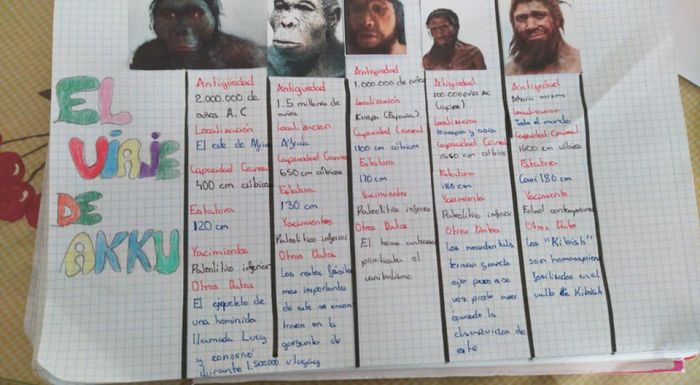 EL
VIAJE
DE
AKKU
Antigüedad
2.000.000 de
años A.C
Localización
El este de Africa
Capacidad Craneal
400 cm cúbicos
Estatura
120 cm
Yacimientos
Paleolítico inferior
Otros Datos
El esqueleto de
una hominida
llamada Lucy
y conservó
durante 1.500.000
Antigüedad
1.5 millones de
años
Localización
Africa
Capacidad Crane
650 cm cúbicos
Estatura
130 cm
Yacimientos
Paleolítico inferior
Otros Datos
Los restos fosiles
mas importantes
de este se encon
traron en la
garganta de
Antigüedad
1.000.000 de años
Localización
Europa (España)
Capacidad Craneal
1100 cm cúbicos
Estatura
170 cm
Yacimientos
Paleolítico inferior
Otros Datos
El homo antecessor
practicaba el
canibalismo
Antigüedad
Localización
Europa y asia
Capacidad Craneal
cm cúbicos
Estatura
160 cm
Yacimiento
Paleolítico inferior
Otros Datos
Los
de
este
Antigüedad
Ahora mismo
Localización
Todo el mundo
Capacidad Craneal
1600 cm cúbicos
Estatura
Casi 180 cm
Yacimiento
Edad contemporanea
Otros Datos
Los "Kibish"
son homosapiens
fosilizados en el
valle de Kibish